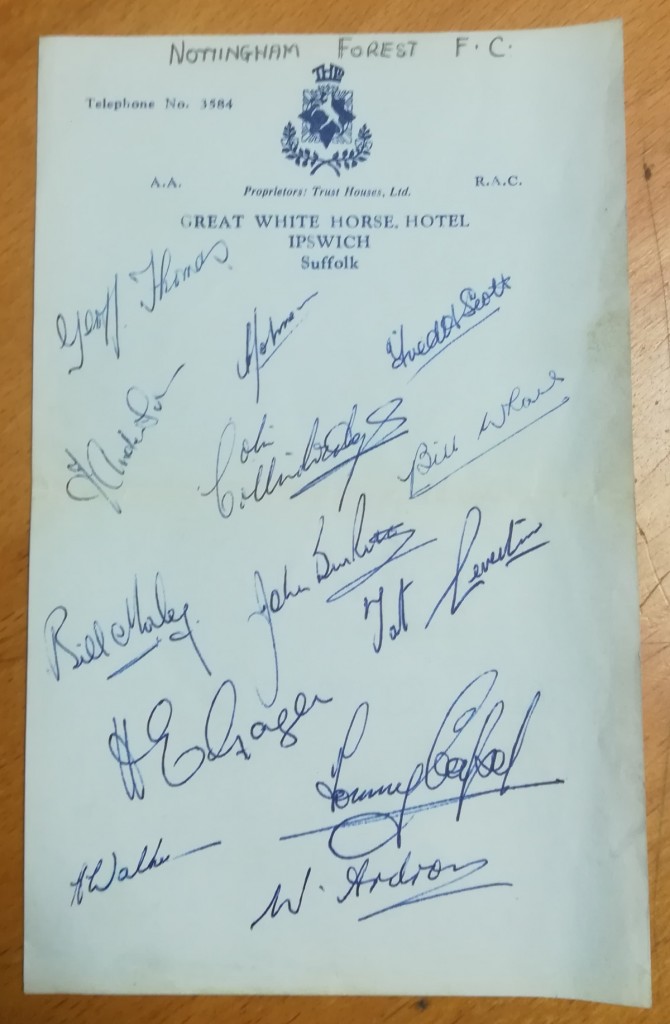 NOTTINGHAM FOREST F.C.
Telephone No. 3584
A.A.
R.A.C.
Proprietors: Trust Houses, Ltd.
GREAT WHITE HORSE, HOTEL
IPSWICH
Suffolk
Geoff. Thomas
Fred A Scott
Colin Collindridge
Bill Whare
John Burkitt
Bill Morley
Tommy Capel
H Walker
W. Ardron